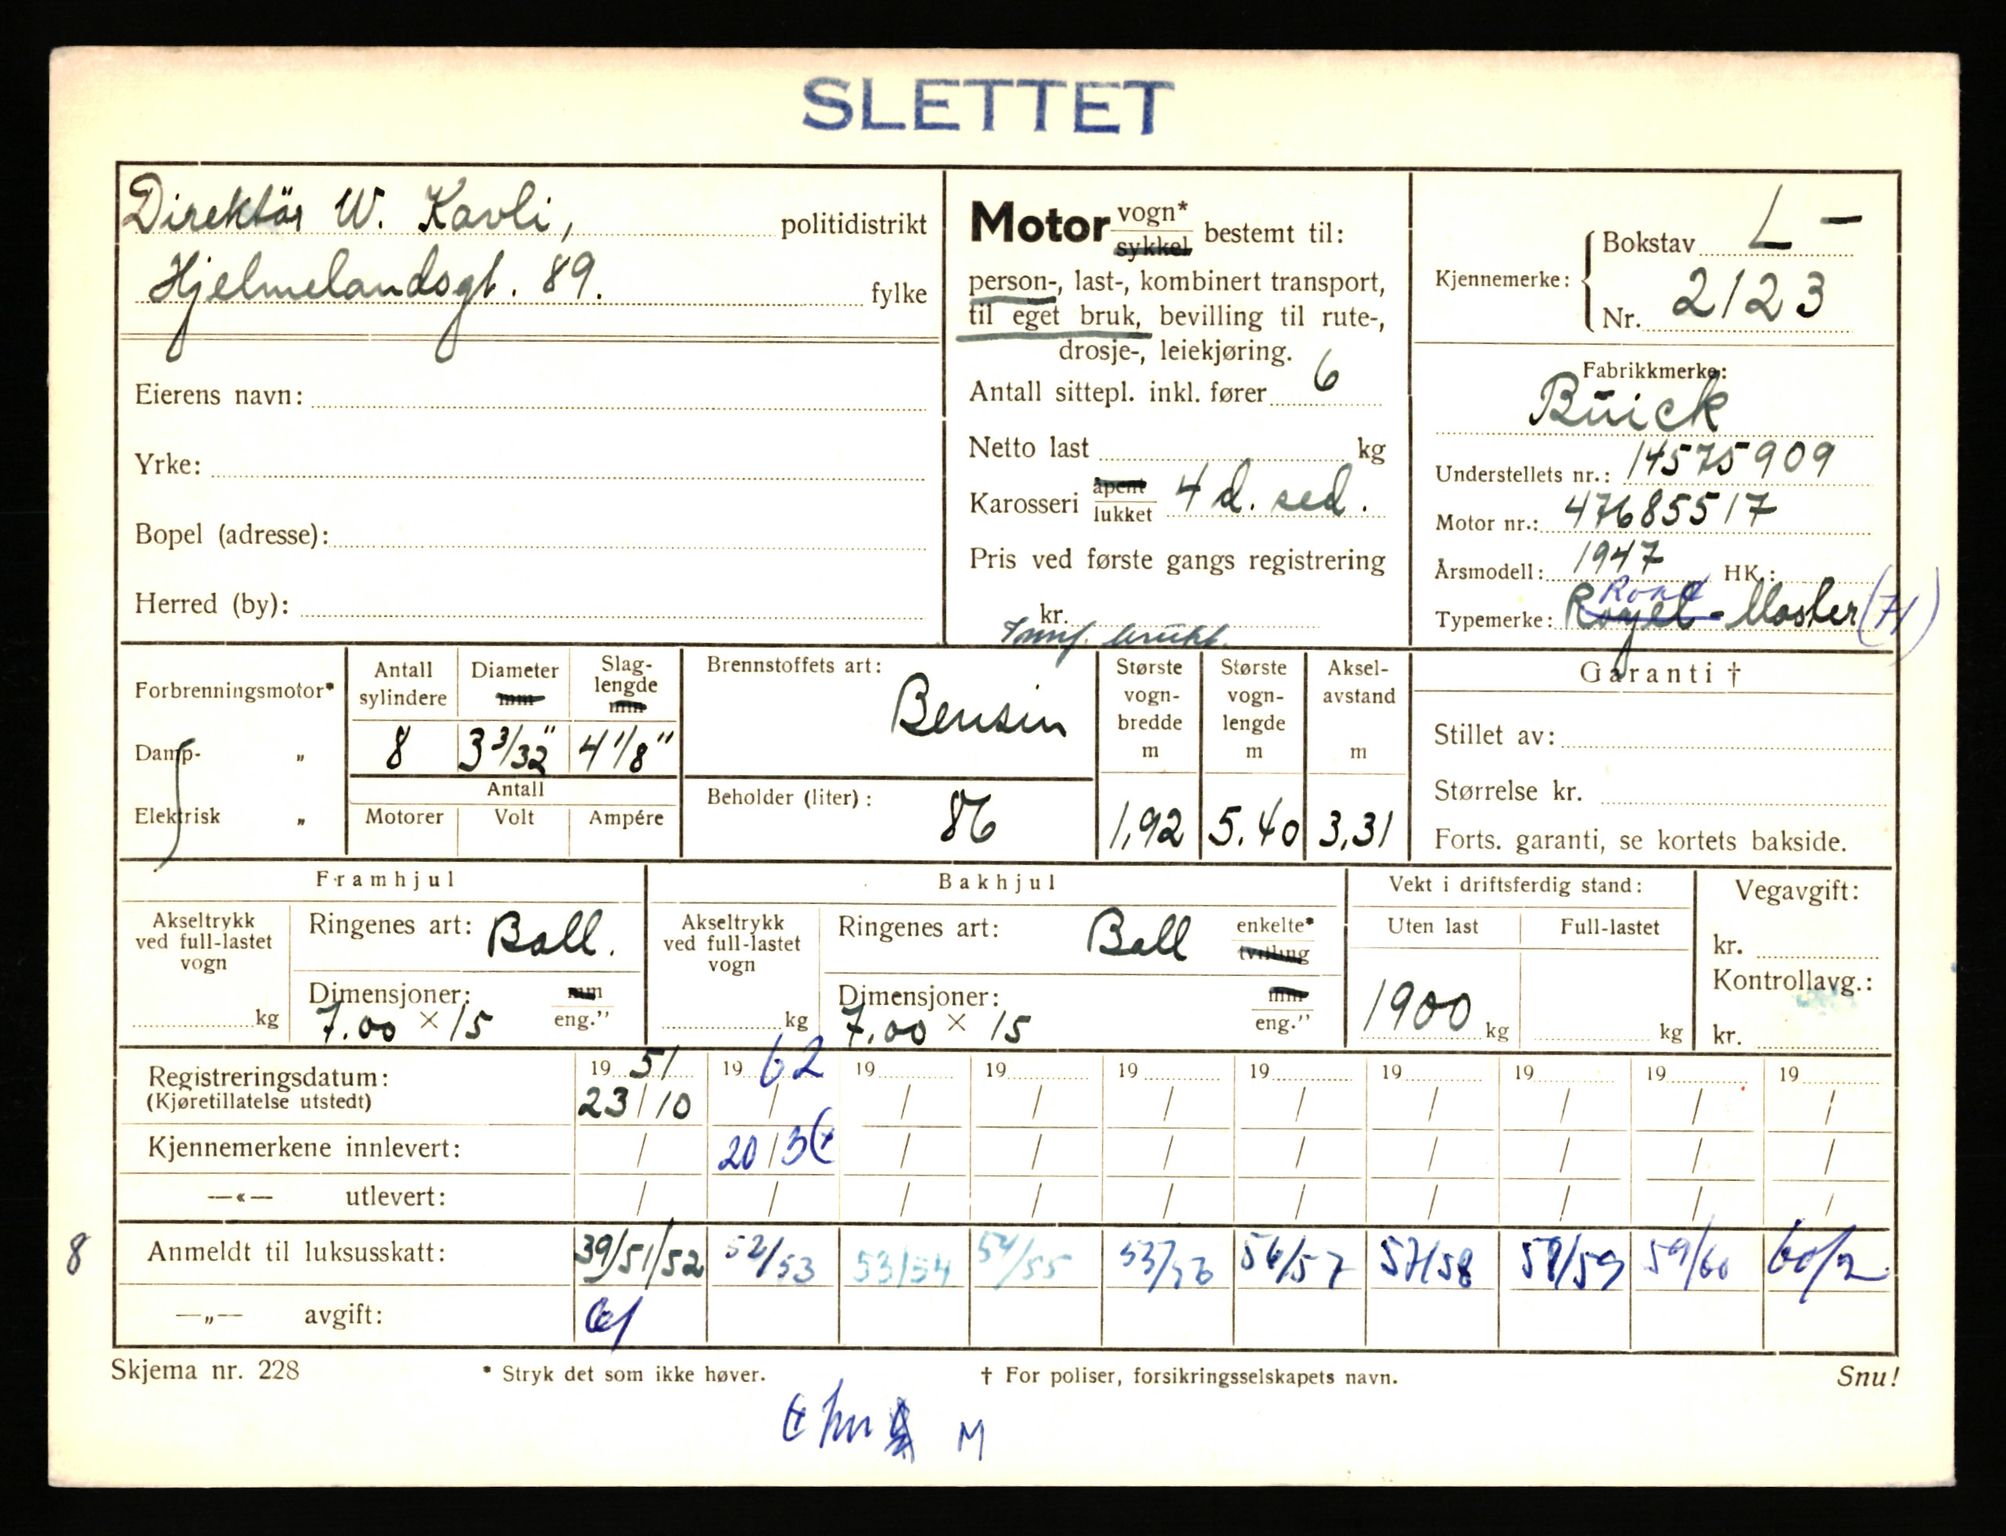 SLETTET
Direktör W. Kavli, politidistrikt
Hjelmelandsgt. 89. fylke
Eierens navn:
Yrke:
Bopel (adresse):
Herred (by):
Motor vogn* sykkel bestemt til:
person-, last-, kombinert transport,
til eget bruk, bevilling til rute-,
drosje-, leiekjøring.
Antall sittepl. inkl. fører 6
Netto last kg
Karosseri åpent lukket 4 d. sed.
Pris ved første gangs registrering
kr.
brukt.
Kjennemerke: Bokstav L -
Nr. 2123
Fabrikkmerke:
Buick
Understellets nr.: 14575909
Motor nr.: 47685517
Årsmodell: 1947 HK.:
Road
Typemerke: - Master (71)
Forbrenningsmotor*
Damp- „
Elektrisk „
Antall sylindere
8
Diameter mm
3 3/32"
Slag-lengde mm
4 1/8"
Antall
Motorer Volt Ampére
Brennstoffets art:
Bensin
Beholder (liter): 86
Største vogn-bredde m
1,92
Største vogn-lengde m
5.40
Aksel-avstand m
3,31
Garanti †
Stillet av:
Størrelse kr.
Forts. garanti, se kortets bakside.
Framhjul
Akseltrykk ved full-lastet vogn
kg
Ringenes art: Ball.
Dimensjoner: mm
7.00 × 15 eng.”
Bakhjul
Akseltrykk ved full-lastet vogn
kg
Ringenes art: Ball enkelte* tvilling
Dimensjoner: mm
7.00 × 15 eng.”
Vekt i driftsferdig stand:
Uten last Full-lastet
1900 kg kg
Vegavgift:
kr.
Kontrollavg.:
kr.
Registreringsdatum: 19 51 19 62 19 19 19 19 19 19 19 19
(Kjøretillatelse utstedt) 23/10 / / / / / / / / /
Kjennemerkene innlevert: / 20/3 / / / / / / / /
—«— utlevert: / / / / / / / / / /
8 Anmeldt til luksusskatt: 39/51/52 52/53 53/54 54/55 56/57 57/58 58/59 59/60
—„— avgift:
Skjema nr. 228 * Stryk det som ikke høver. † For poliser, forsikringsselskapets navn. Snu!
M